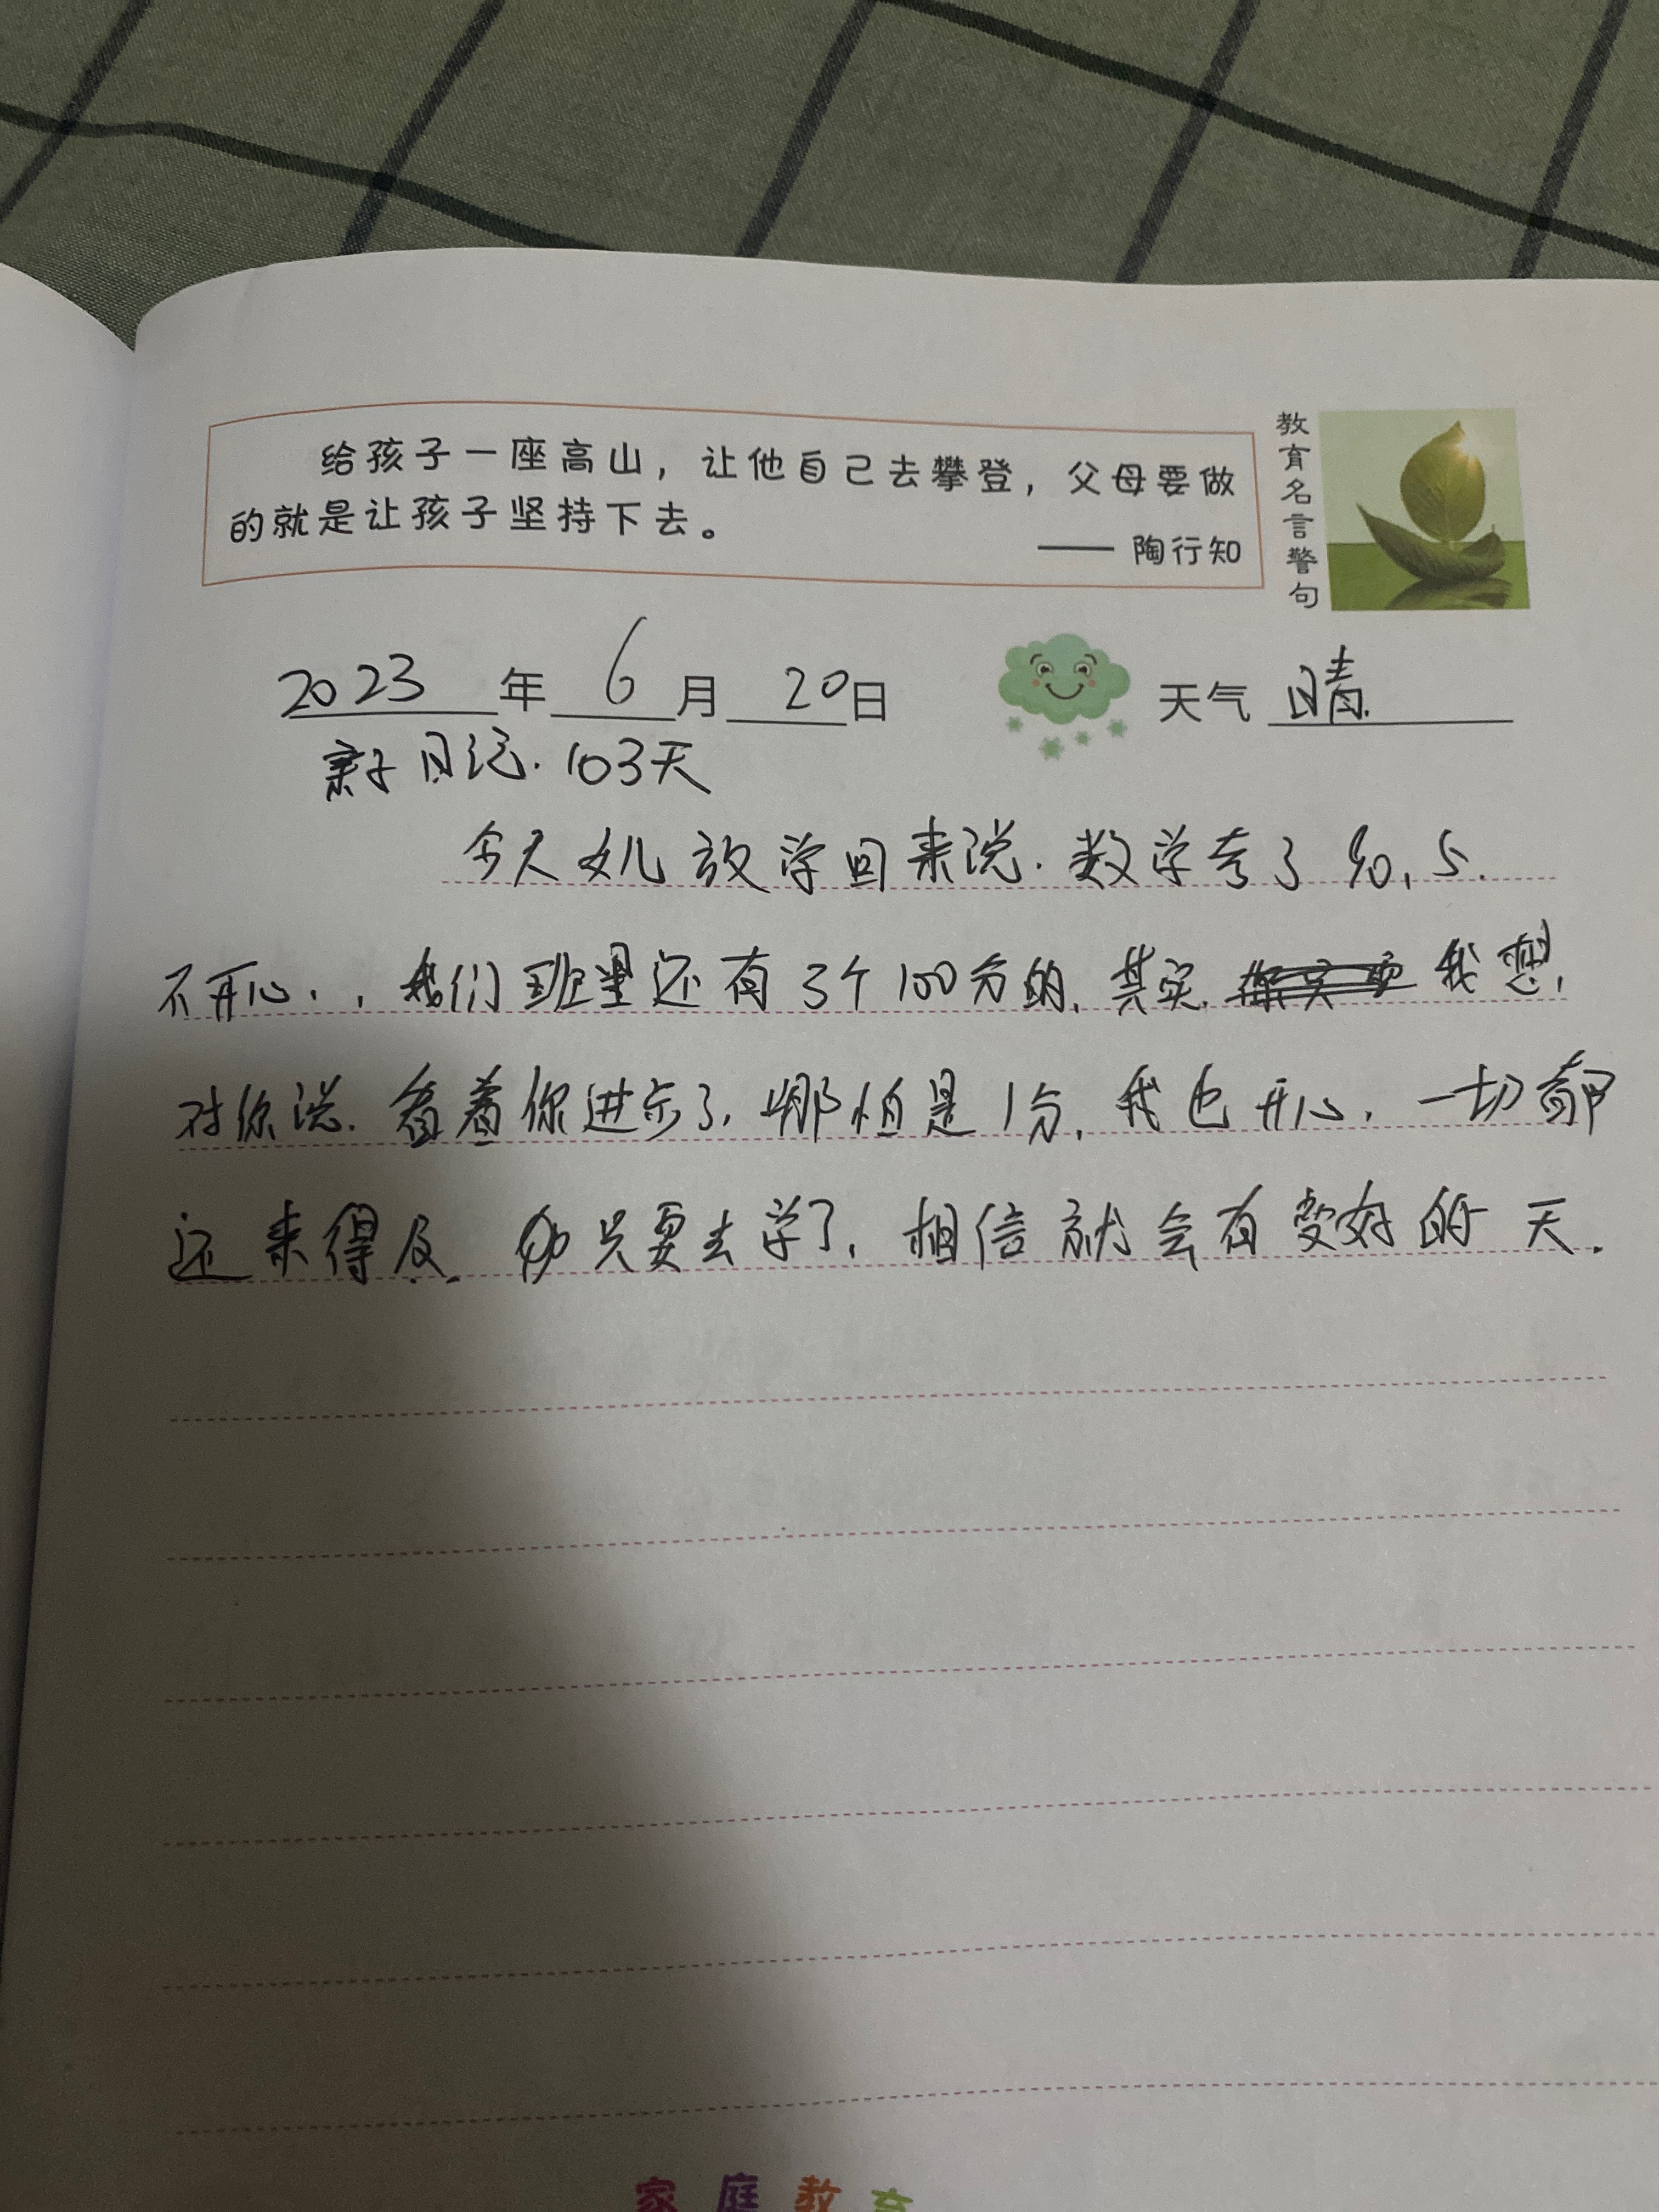 给孩子一座高山，让他自己去攀登，父母要做
的就是让孩子坚持下去。
—— 陶行知
教育名言警句
2023年6月20日 天气 晴.
亲子日记. 103天
今天女儿放学回来说. 数学考了90.5.
不开心.. 我们班里还有3个100分的. 其实. 我想,
对你说. 看着你进步了, 哪怕是1分, 我也开心. 一切都
还来得及. 只要去学了, 相信就会有变好的天.
家庭教育